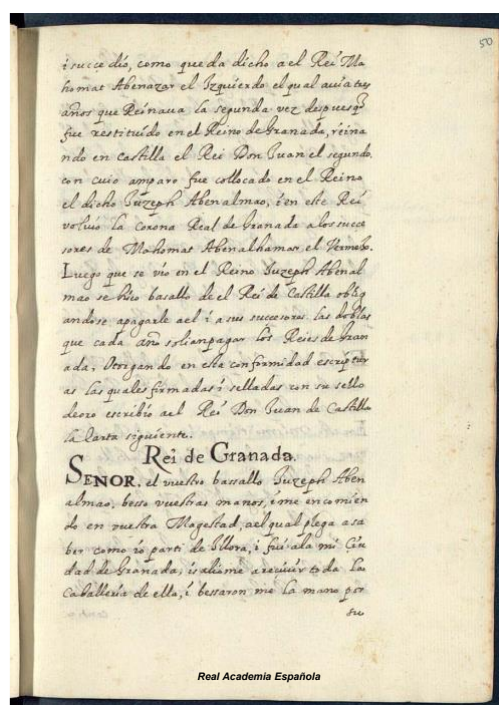 50
i succedio, como queda dicho a el Rei Ma
homat Abenazar el Izquierdo el qual auia tres
años que Reinaua la segunda vez despues q̃
fue restituido en el Reino de Granada, reina
ndo en Castilla el Rei Don Juan el segundo,
con cuio amparo fue collocado en el Reino
el dicho Juzeph Abenalmao, i en este Rei
voluio la Corona Real de Granada a los succe
sores de Mahomat Abenalhamar el Vermejo.
Luego que se vio en el Reino Juzeph Abenal
mao se hiço basallo de el Rei de Castilla oblig
andose a pagarle a el i a sus successores las doblas
que cada año solian pagar los Reies de Gran
ada, Otorgando en esta conformidad escriptur
as las quales firmadas i selladas con su sello
de oro escribio a el Rei Don Juan de Castilla
la Carta siguiente.
Rei de Granada.
SENOR. el vuestro bassallo Juzeph Aben
almao, besso vuestras manos, i me encomien
do en vuestra Magestad, a el qual plega a sa
ber como io parti de Illora, i fui a la mi Ciu
dad de Granada, i salióme a reciuir toda la
Caballeria de ella, i bessaron me la mano por
su
Real Academia Española